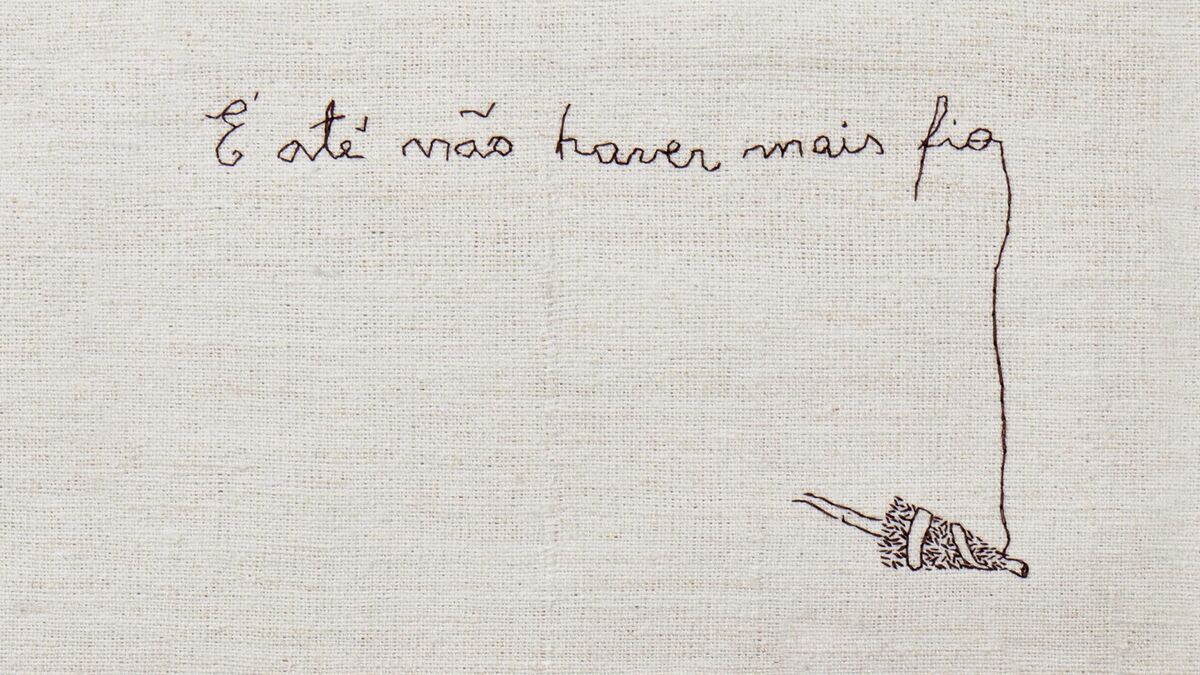 É até não haver mais fio